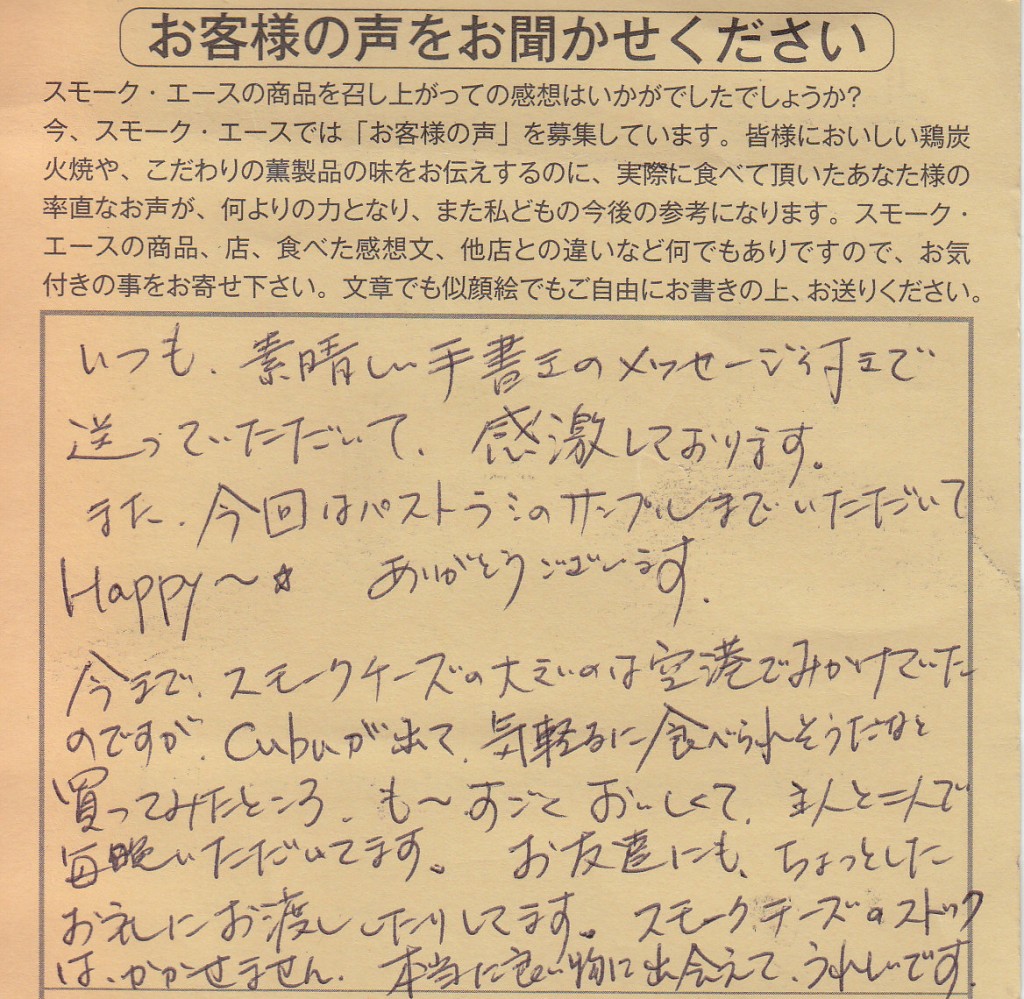 お客様の声をお聞かせください
スモーク・エースの商品を召し上がっての感想はいかがでしたでしょうか?
今、スモーク・エースでは「お客様の声」を募集しています。皆様においしい鶏炭
火焼や、こだわりの薫製品の味をお伝えするのに、実際に食べて頂いたあなた様の
率直なお声が、何よりの力となり、また私どもの今後の参考になります。スモーク・
エースの商品、店、食べた感想文、他店との違いなど何でもありですので、お気
付きの事をお寄せ下さい。文章でも似顔絵でもご自由にお書きの上、お送りください。
いつも、素晴しい手書きのメッセージ付きで
送っていただいて、感激しております。
また、今回はパストラミのサンプルまでいただいて
Happy〜☆ ありがとうございます。
今まで、スモークチーズの大きいのは空港でみかけていた
のですが、Cubuが出て、気軽るに食べられそうだなと
買ってみたところ、も〜すごく おいしくて、主人と二人で
毎晩いただいてます。 お友達にも、ちょっとした
お礼にお渡ししたりしてます。 スモークチーズのストック
は、かかせません。 本当に良い物に出会えて、うれしいです